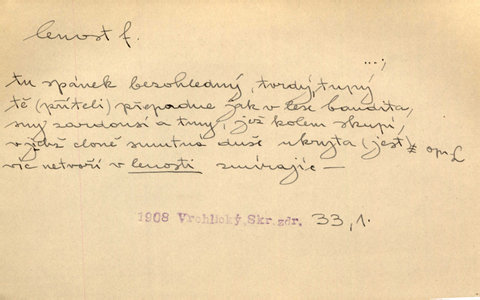 lenost f.
...;
tu spánek bezohledný, tvrdý, tupý
tě (příteli) přepadne jak v lese bandita,
sny zardousí a tmy, jež kolem skupí,
v jichž cloně smutna duše ukryta (jest)
víc netvoří v lenosti zmírajíc —
1908 Vrchlický, Skr. zdr. 33, 1.